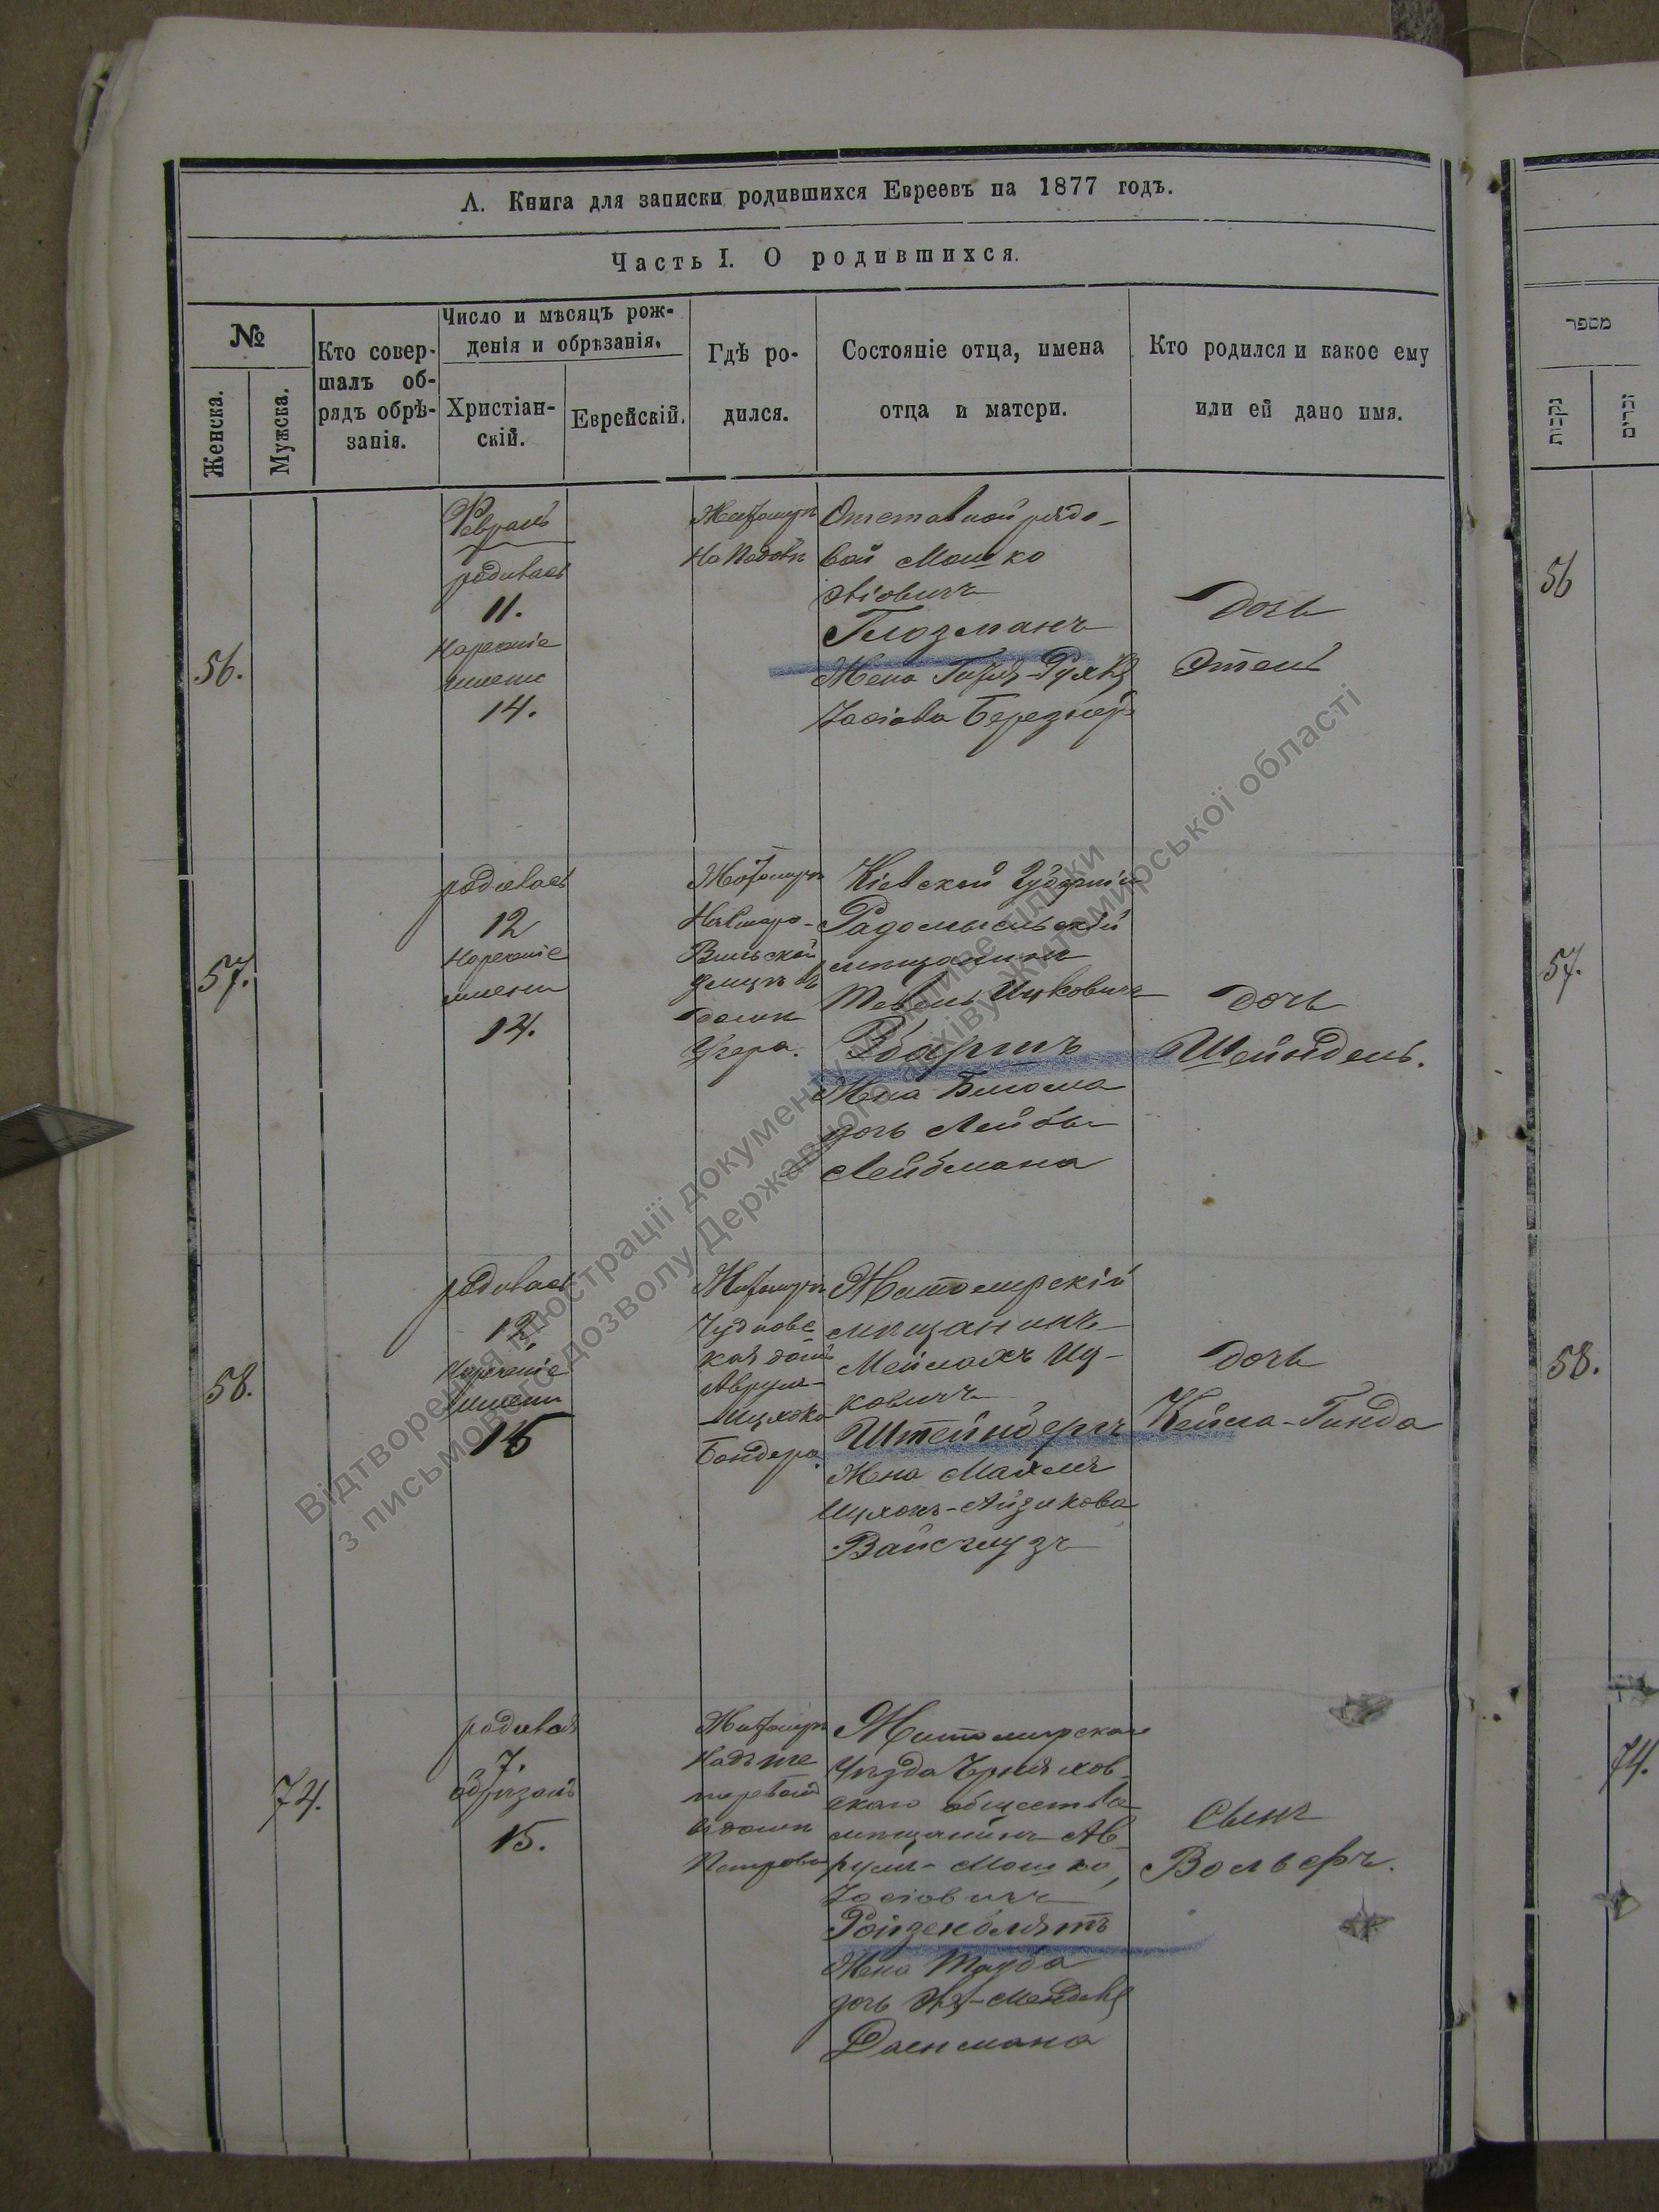 А. Книга для записки родившихся Евреевъ на 1877 годъ.
Часть I. О родившихся.
№
Женска.
Мужска.
Кто совер-
шалъ об-
рядъ обрѣ-
занія.
Число и мѣсяцъ рож-
денія и обрѣзанія.
Христіан-
скій.
Еврейскій.
Гдѣ ро-
дился.
Состояніе отца, имена
отца и матери.
Кто родился и какое ему
или ей дано имя.
56.
Февраль
родилась
11.
нареченіе
имени
14.
Житомиръ
Отставной рядо-
вой Мошко
Глозманъ
Жена
дочь
Этель
57.
родилась
12
нареченіе
имени
14.
Житомиръ
Вильской
улицѣ въ
домѣ
Кіевской Губерніи
Радомысльскій
мѣщанинъ
Тевель Ицковичъ
Жена Блюма
дочь Лейбы
Лейбмана
дочь
Шейндель.
58.
родилась
12
нареченіе
имени
15
Житомиръ
Чудновс
кая домъ
Аврум-
Бондера.
Житомирскій
мѣщанинъ
Мейлахъ Иц-
ковичъ
Штейнбергъ
Жена Махля
Ицхокъ-Айзикова
дочь
Кейла-Гинда
74.
родился
7.
обрѣзанъ
15.
Житомиръ
въ домѣ
Петрова
Житомирскаго
Уѣзда Черняхов-
скаго общества
мѣщанинъ Ав-
румъ-Мошко
Іосіовичъ
Ройзенблятъ
Жена Тауба
дочь
Сынъ
Вольфъ.
מספר
נקבות
זכרים
56
57.
58.
74.
Відтворення ілюстрації документу можливе тільки
з письмового дозволу Державного архіву Житомирської області